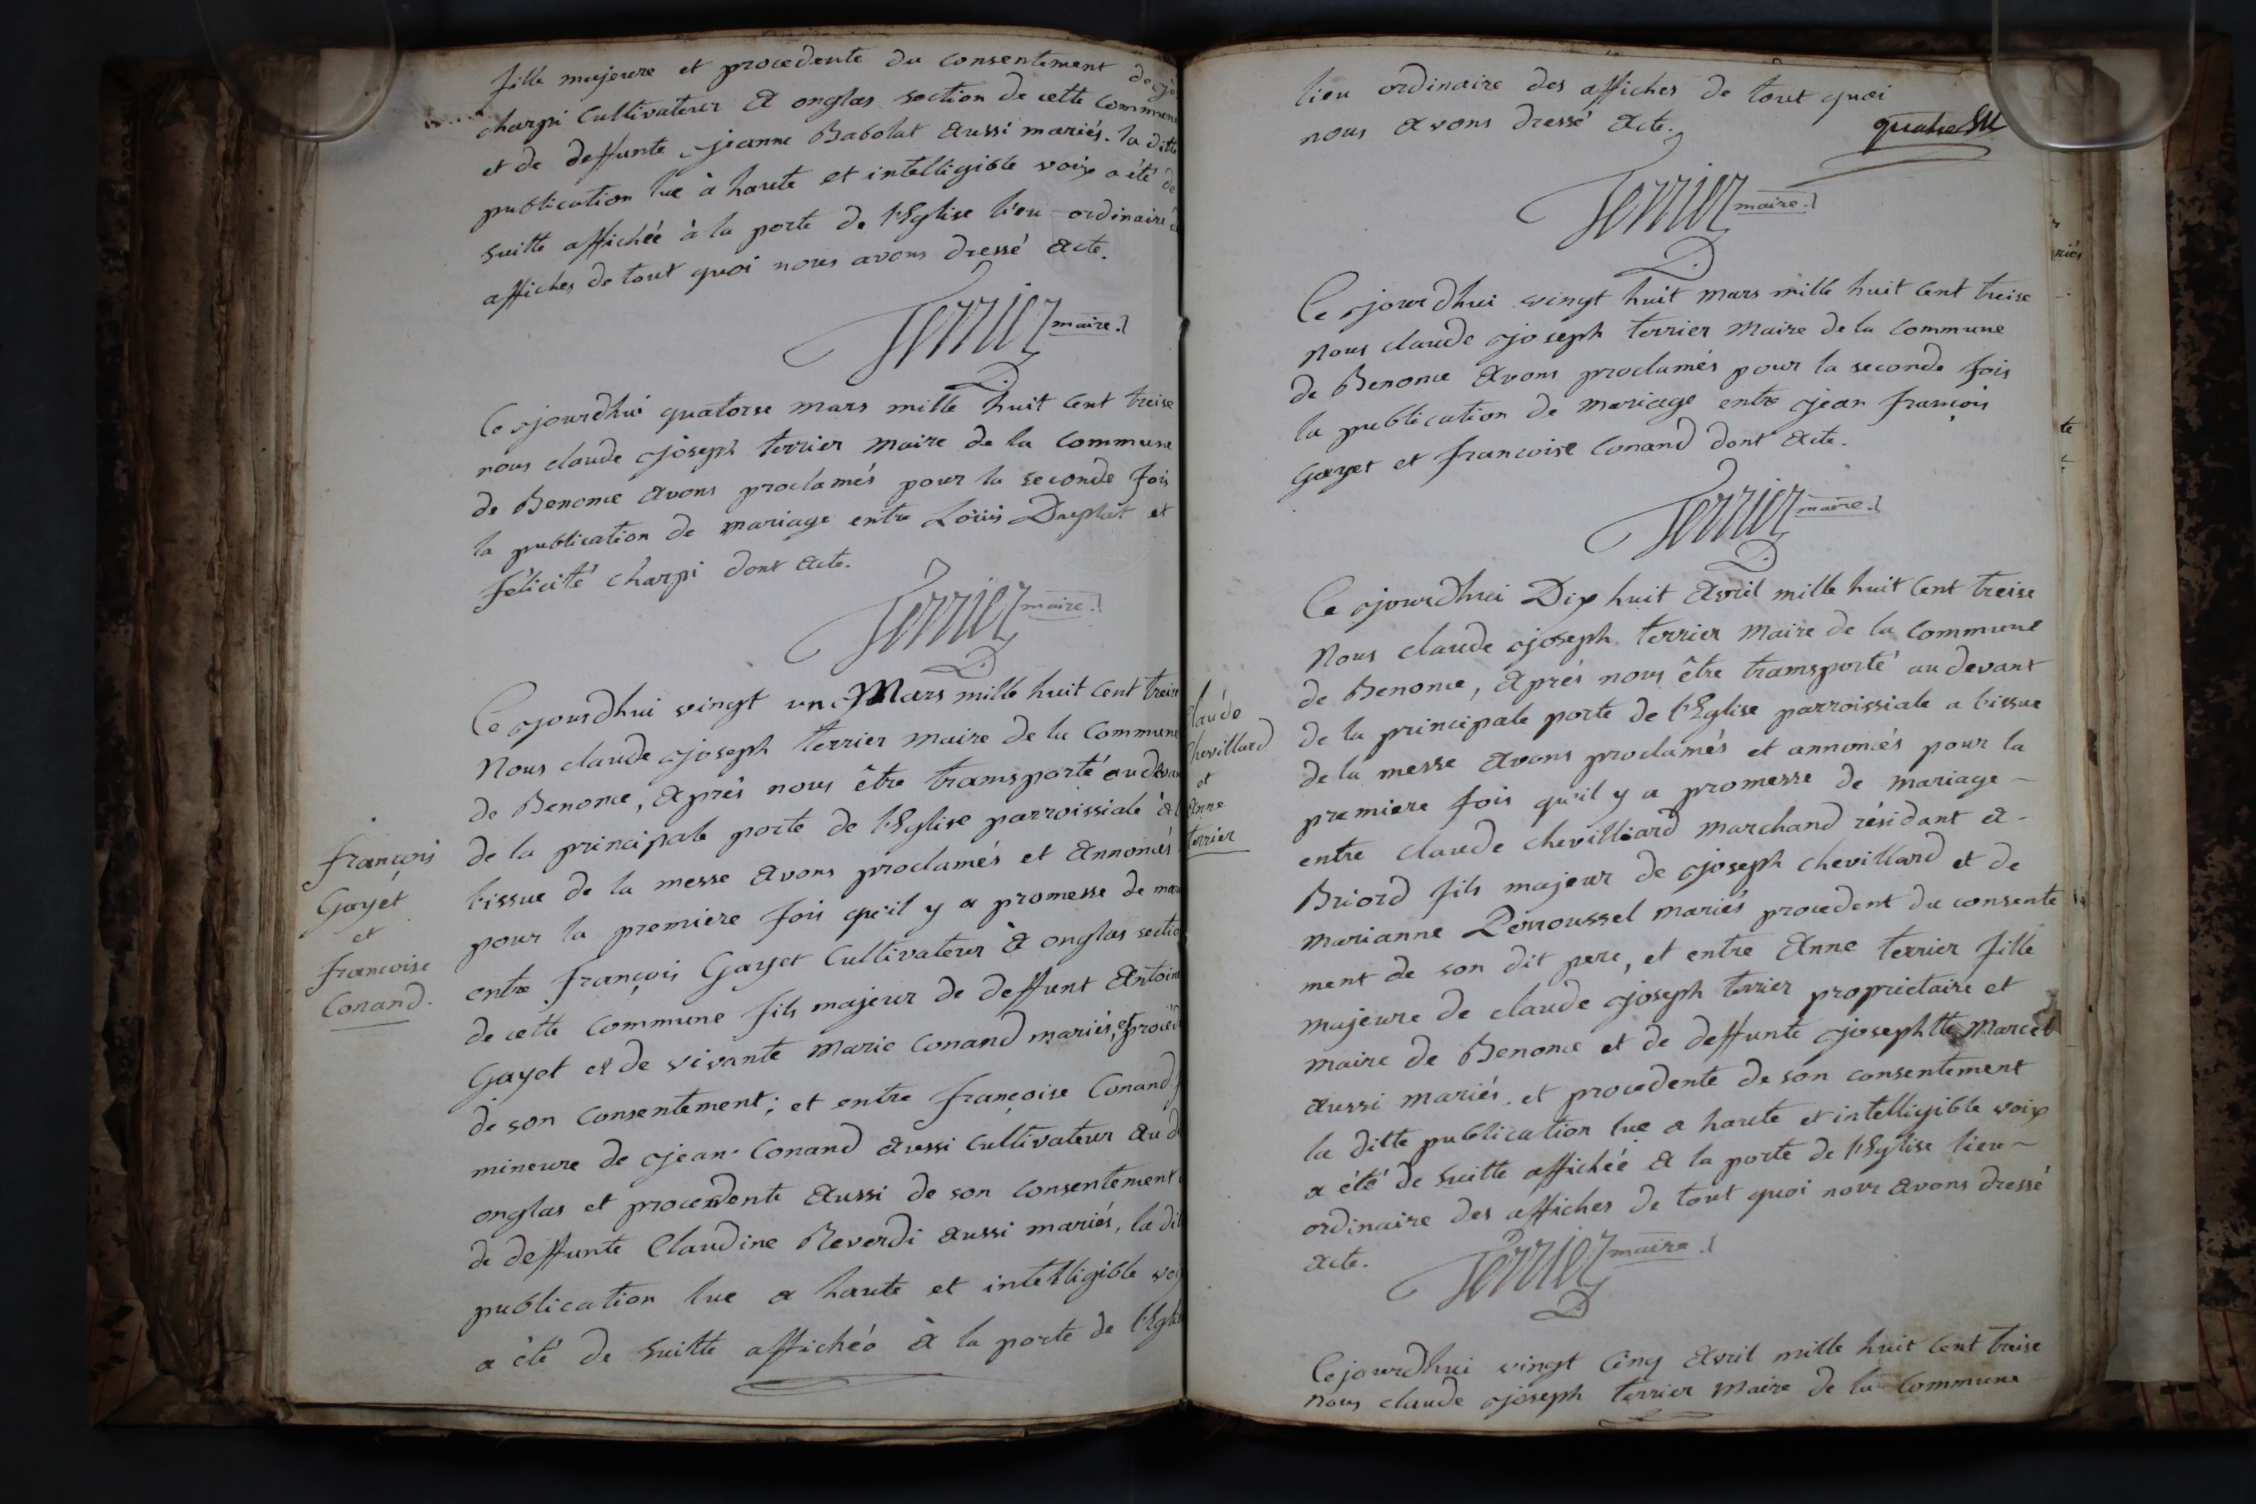 fille majeure et procedente du consentement de
charpi Cultivateur a onglas section de cette Commune
et de deffunte jeanne Babolat aussi mariés. la ditte
publication lue à haute et intelligible voix a été de
suitte affichée à la porte de l'Eglise lieu ordinaire
affiches de tout quoi nous avons dressé acte.
Terrier maire
Ce jourdhui quatorse mars mille huit Cent treise
nous claude joseph terrier maire de la Commune
de Benonce avons proclamés pour la seconde fois
la publication de mariage entre Loüis Duplat et
félicité charpi dont acte.
Terrier maire
françois
Gayet
et
francoise
Conand.
Ce jourdhui vingt un Mars mille huit Cent treise
Nous claude joseph terrier maire de la Commune
de Benonce, après nous être transporté au deva
de la principale porte de l'Eglise parroissiale à
l'issue de la messe avons proclamés et annoncés
pour la premiere fois qu'il y a promesse de ma
entre françois Gayet Cultivateur à onglas sectio
de cette Commune fils majeur de deffunt Antoine
Gayet et de vivante marie Conand mariés, et proced
de son Consentement; et entre françoise Conand
mineure de jean Conand aussi Cultivateur au d
onglas et procedente aussi de son consentement
de deffunte Claudine Reverdi aussi mariés, la dit
publication lue a haute et intelligible voi
a été de suitte affichée à la porte de l'Eglis
lieu ordinaire des affiches de tout quoi
nous avons dressé acte.
Terrier maire
Ce jourdhui vingt huit mars mille huit Cent treise
Nous claude joseph terrier Maire de la Commune
de Benonce avons proclamés pour la seconde fois
la publication de mariage entre jean françois
Gayet et francoise Conand dont acte.
Terrier maire
Claude
Chevillard
et
Anne
terrier
Ce jourdhui Dix huit avril mille huit Cent treise
Nous claude joseph terrier Maire de la Commune
de Benonce, après nous être transporté au devant
de la principale porte de l'Eglise parroissiale a l'issue
de la messe avons proclamés et annoncés pour la
premiere fois qu'il y a promesse de mariage
entre claude chevilliard marchand résidant a
Briord fils majeur de joseph chevillard et de
marianne Perroussel mariés procedent du consente
ment de son dit pere, et entre Anne terrier fille
majeure de claude joseph terrier proprietaire et
maire de Benonce et de deffunte josephtte Marcel
aussi mariés. et procedente de son consentement
la ditte publication lue a haute et intelligible voix
a été de suitte affichée a la porte de l'Eglise lieu
ordinaire des affiches de tout quoi nous avons dressé
acte.
Terrier maire
Cejourdhui vingt Cinq avril mille huit Cent treise
nous claude joseph terrier maire de la Commune